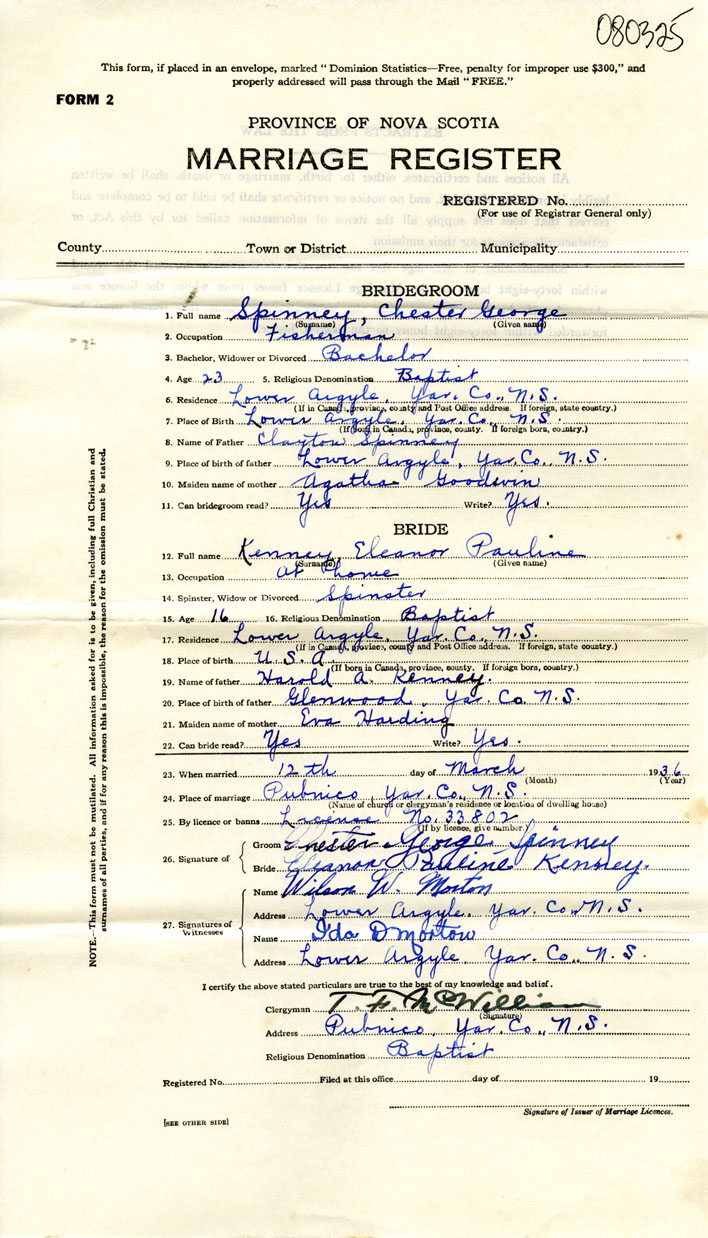 080325
This form, if placed in an envelope, marked "Dominion Statistics—Free, penalty for improper use $300," and
properly addressed will pass through the Mail "FREE."
FORM 2
PROVINCE OF NOVA SCOTIA
MARRIAGE REGISTER
REGISTERED No.
(For use of Registrar General only)
County Town or District Municipality
BRIDEGROOM
1. Full name Spinney, Chester George
(Surname) (Given name)
2. Occupation Fisherman
3. Bachelor, Widower or Divorced Bachelor
4. Age 23 5. Religious Denomination Baptist
6. Residence Lower Argyle, Yar. Co., N.S.
(If in Canada, province, county and Post Office address. If foreign, state country.)
7. Place of Birth Lower Argyle, Yar. Co., N.S.
(If born in Canada, province, county. If foreign born, country.)
8. Name of Father Clayton Spinney
9. Place of birth of father Lower Argyle, Yar. Co., N.S.
10. Maiden name of mother Agatha Goodwin
11. Can bridegroom read? Yes Write? Yes.
BRIDE
12. Full name Kenney, Eleanor Pauline
(Surname) (Given name)
13. Occupation At Home
14. Spinster, Widow or Divorced Spinster
15. Age 16 16. Religious Denomination Baptist
17. Residence Lower Argyle, Yar. Co., N.S.
(If in Canada, province, county and Post Office address. If foreign, state country.)
18. Place of birth U.S.A.
(If born in Canada, province, county. If foreign born, country.)
19. Name of father Harold A. Kenney.
20. Place of birth of father Glenwood, Yar. Co. N.S.
21. Maiden name of mother Eva Harding
22. Can bride read? Yes Write? Yes.
23. When married 12th day of March 1936
(Month) (Year)
24. Place of marriage Pubnico, Yar. Co., N.S.
(Name of church or clergyman's residence or location of dwelling house)
25. By licence or banns License No. 33802
(If by licence, give number.)
26. Signature of
Groom Chester George Spinney
Bride Eleanor Pauline Kenney.
27. Signatures of Witnesses
Name Wilson W. Morton
Address Lower Argyle, Yar. Co., N.S.
Name Ida D Morton
Address Lower Argyle, Yar. Co., N.S.
I certify the above stated particulars are true to the best of my knowledge and belief.
Clergyman T. F. McWilliam
(Signature)
Address Pubnico, Yar. Co., N.S.
Religious Denomination Baptist
Registered No. Filed at this office day of 19
Signature of Issuer of Marriage Licences.
[SEE OTHER SIDE]
NOTE.—This form must not be mutilated. All information asked for is to be given, including full Christian and
surnames of all parties, and if for any reason this is impossible, the reason for the omission must be stated.